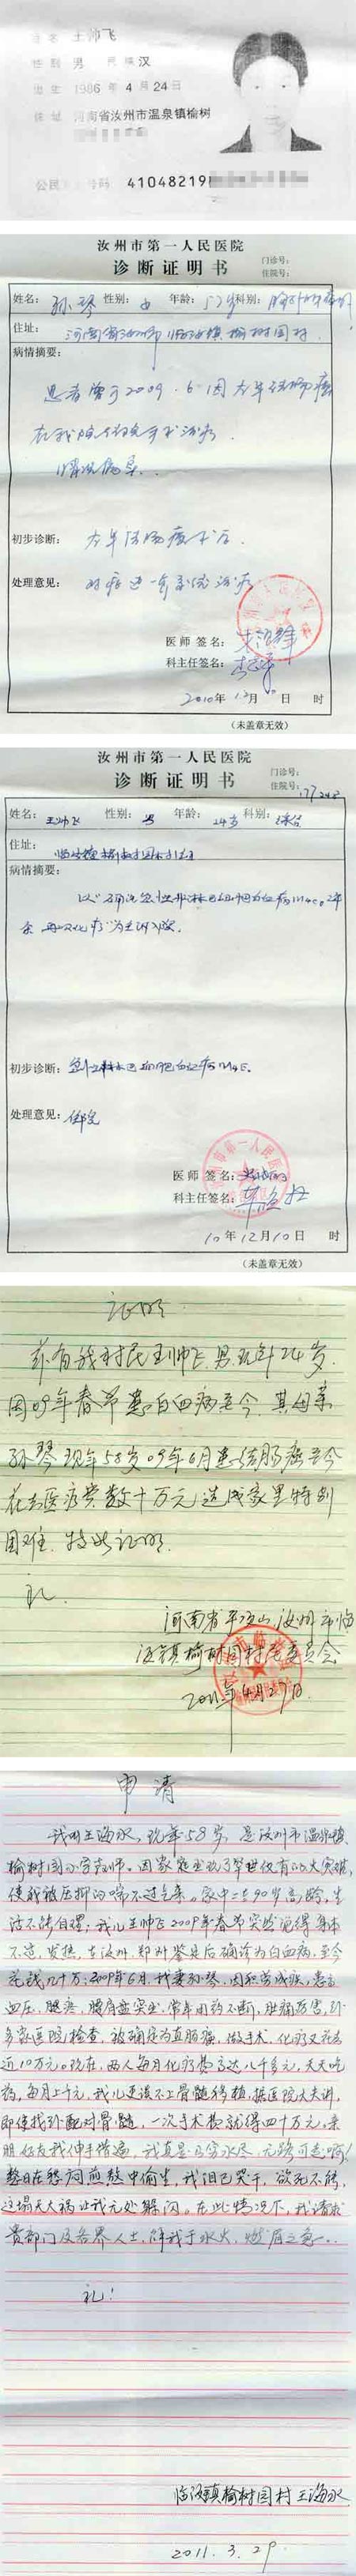 姓名 王帅飞
性别 男 民族 汉
出生 1986 年 4 月 24 日
住址 河南省汝州市温泉镇榆树
公民 号码 41048219
汝州市第一人民医院
诊断证明书
门诊号:
住院号:
姓名: 孙琴 性别: 女 年龄: 57岁 科别:
住址: 河南省汝州市临汝镇榆树园村
病情摘要:
患者曾于2009.6因左半结肠癌
在我院住院手术治疗.
初步诊断: 左半结肠癌术后.
处理意见:
医师签名:
科主任签名:
2010年 12月 10日 时
(未盖章无效)
汝州市第一人民医院
诊断证明书
门诊号:
住院号:
姓名: 王帅飞 性别: 男 年龄: 24岁 科别:
住址: 临汝镇榆树园村
病情摘要:
以“确诊急性非淋巴细胞白血病M4E 2年
余 再次化疗”为主诉入院.
初步诊断: 急性非淋巴细胞白血病M4E.
处理意见: 住院
医师签名:
科主任签名:
10年12月10日 时
(未盖章无效)
证明
兹有我村民王帅飞 男 现年24岁
因09年春节患白血病至今 其母亲
孙琴现年58岁09年6月患结肠癌至今
花去医疗费数十万元 造成家里特别
困难. 特此证明.
礼
河南省平顶山汝州市临
汝镇榆树园村党委员会
2011年4月29日.
申请
我叫王海水, 现年58岁, 是汝州市温泉镇
榆树园小学教师。因家庭出现了举世仅有的大灾难,
使我被压抑的喘不过气来。家中二老90岁高龄, 生
活不能自理; 我儿王帅飞2009年春节突然觉得身体
不适, 发热, 去汝州、郑州鉴定后确诊为白血病, 至今
花钱几十万; 2009年6月, 我妻孙琴, 因积劳成疾, 患高
血压, 腿疼, 腰肩盘突出, 常年用药不断, 肚痛厉害, 到
多家医院检查, 被确诊为直肠癌, 做手术, 化疗又花去
近10万元。现在, 两人每月化疗费高达八千多元, 天天吃
药, 每月上千元, 我儿更谈不上骨髓移植, 据医院大夫讲,
即使找到配对骨髓, 一次手术费就得四十万元, 亲
朋好友我伸手借遍, 我真是山穷水尽, 无路可走啊!
整日在愁闷煎熬中偷生, 我泪已哭干, 欲死不能,
这塌天大祸让我无处躲闪。在此情况下, 我请求
贵部门及各界人士, 解我于水火, 燃眉之急...
礼!
临汝镇榆树园村 王海水
2011.3.29